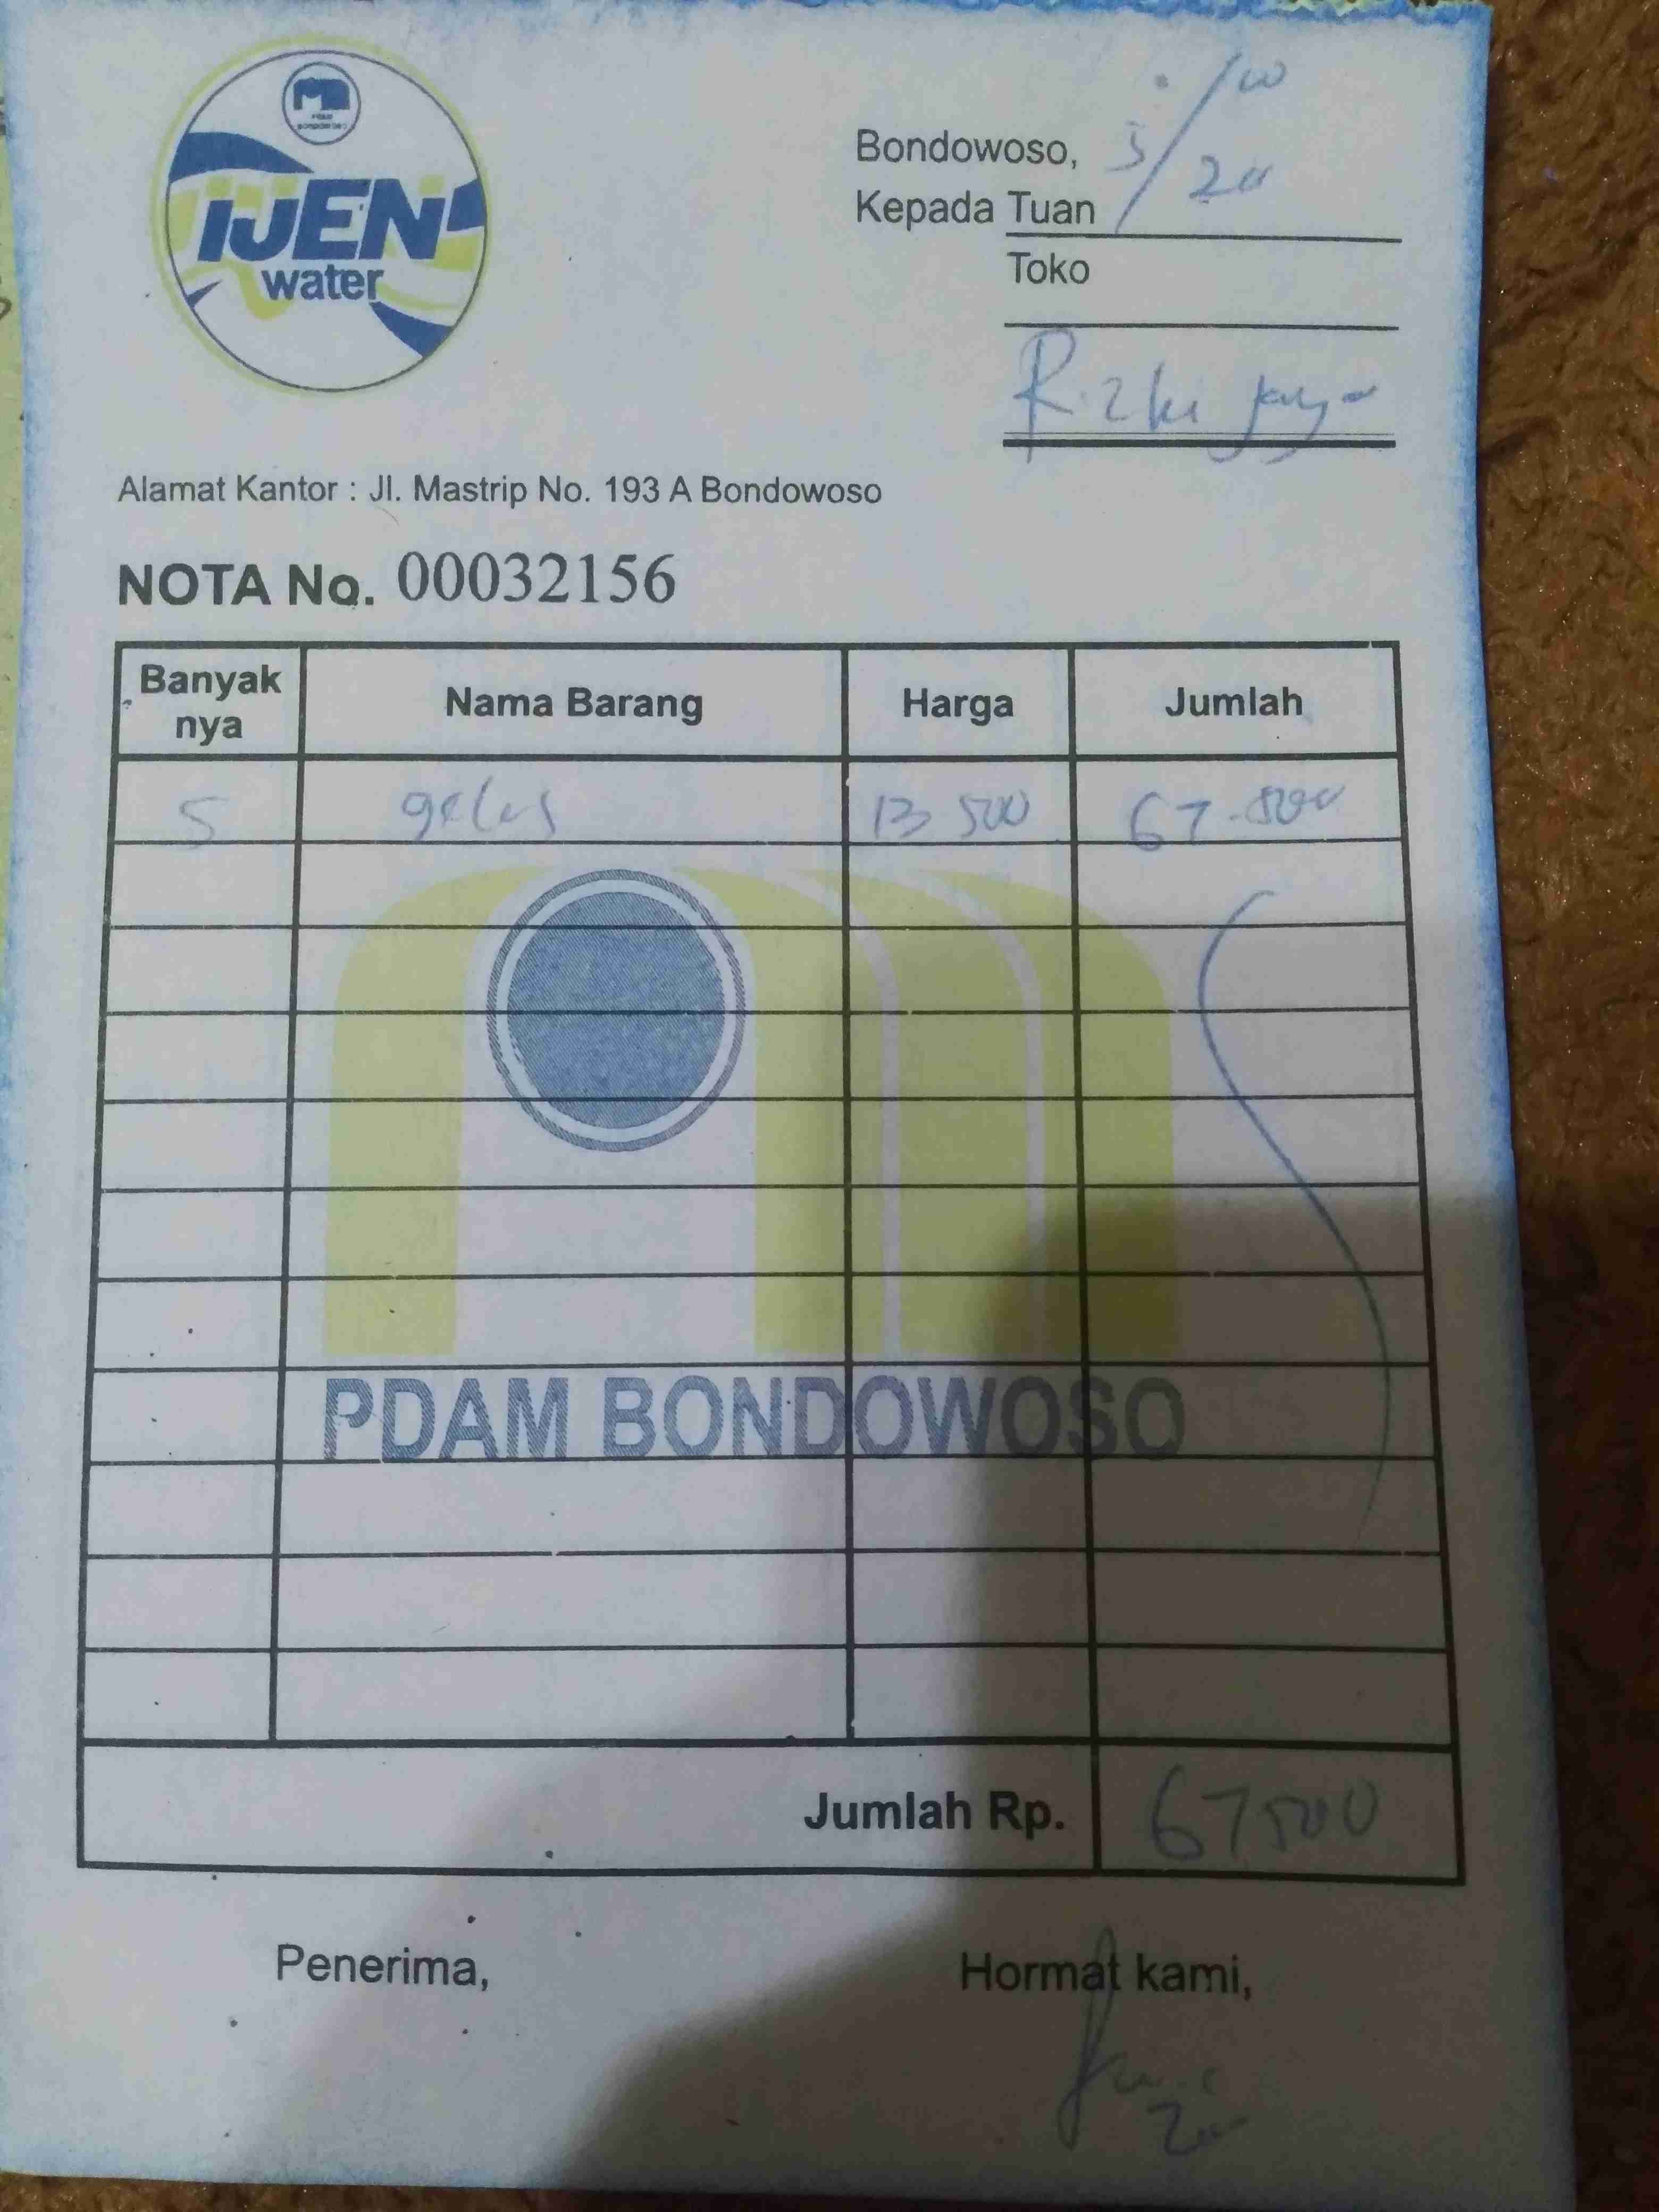 IJEN
water
Bondowoso, 5/10 20
Kepada Tuan
Toko
Rizki jaya
Alamat Kantor : Jl. Mastrip No. 193 A Bondowoso
NOTA No. 00032156
Banyak nya Nama Barang Harga Jumlah
5 gelas 13 500 67.500
PDAM BONDOWOSO
Jumlah Rp. 67500
Penerima, Hormat kami,